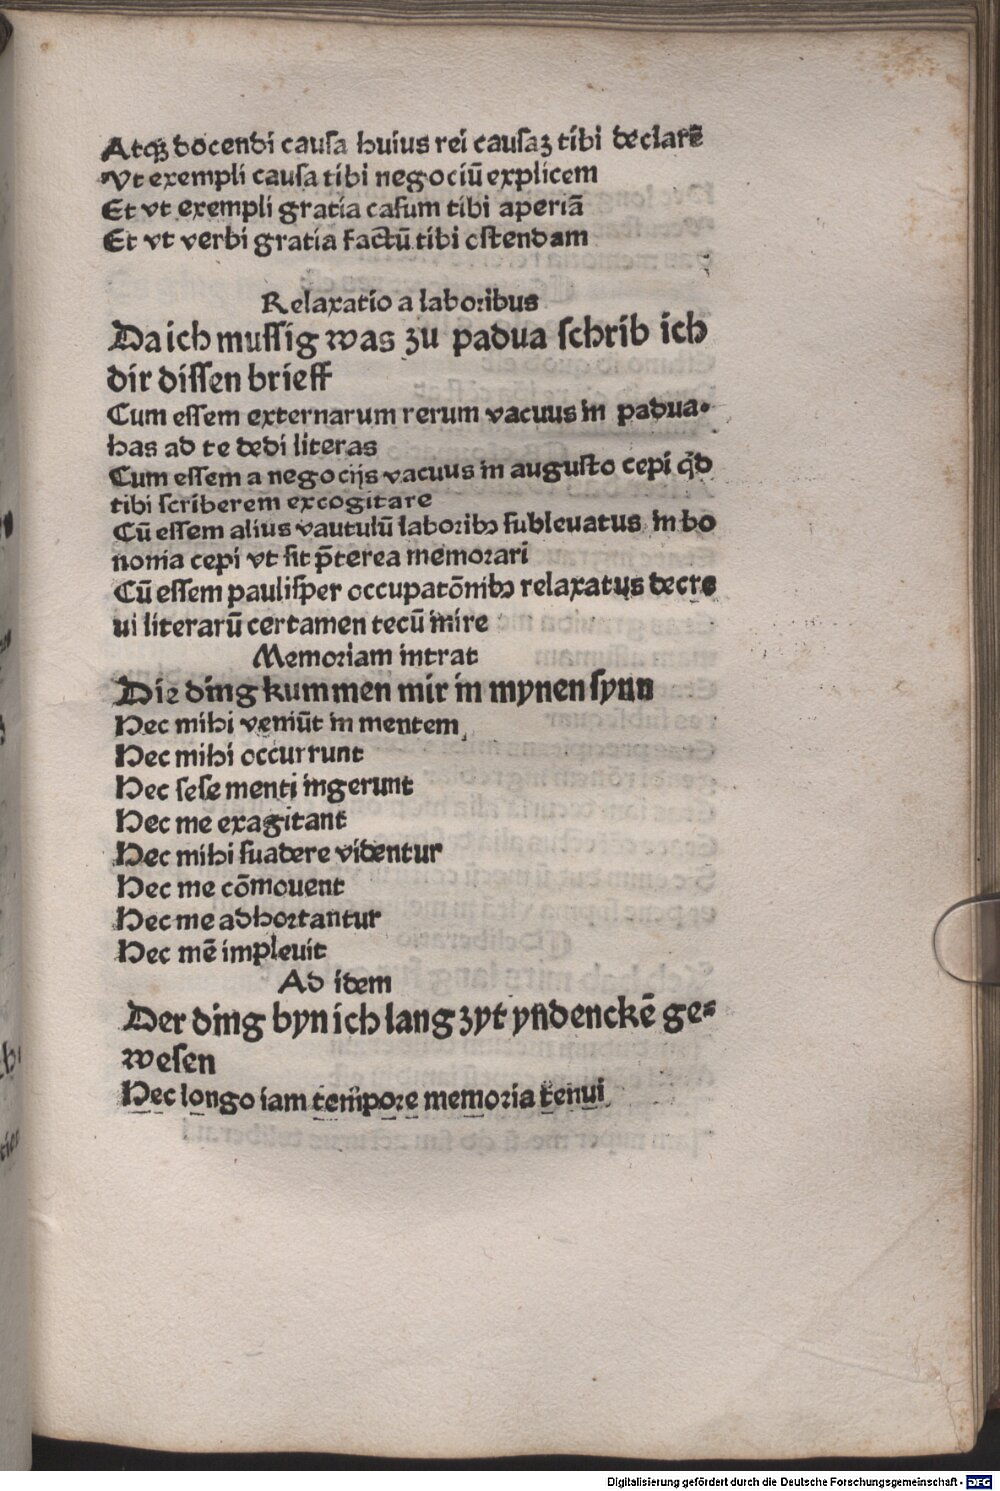 Atqꝫ docendi cauſa huius rei cauſaꝫ tibi declarē
Vt exempli cauſa tibi negociū explicem
Et vt exempli gratia caſum tibi aperiā
Et vt verbi gratia factū tibi cſtendam
Relaxatio a laboribus
Da ich muſſig was zu padua ſchrib ich
dir diſſen brieff
Cum eſſem externarum rerum vacuus in padua·
has ad te dedi literas
Cum eſſem a negocijs vacuus in auguſto cepi qd̄
tibi ſcriberem excogitare
Cū eſſem alius vautulū laboribꝫ ſubleuatus in bo
nonia cepi vt ſit p̄terea memorari
Cū eſſem pauliſper occupatōnibꝫ relaxatus decre
ui literarū certamen tecū inire
Memoriam intrat
Die ding kummen mir in mynen ſynn
Hec mihi veniūt in mentem
Hec mihi occurrunt
Hec ſeſe menti ingerunt
Hec me exagitant
Hec mihi ſuadere videntur
Hec me cōmouent
Hec me adhortantur
Hec mē impleuit
Ad idem
Der ding byn ich lang zyt yndenckē ge⸗
weſen
Hec longo iam tempore memoria tenui
Digitalisierung gefördert durch die Deutsche Forschungsgemeinschaft - DFG